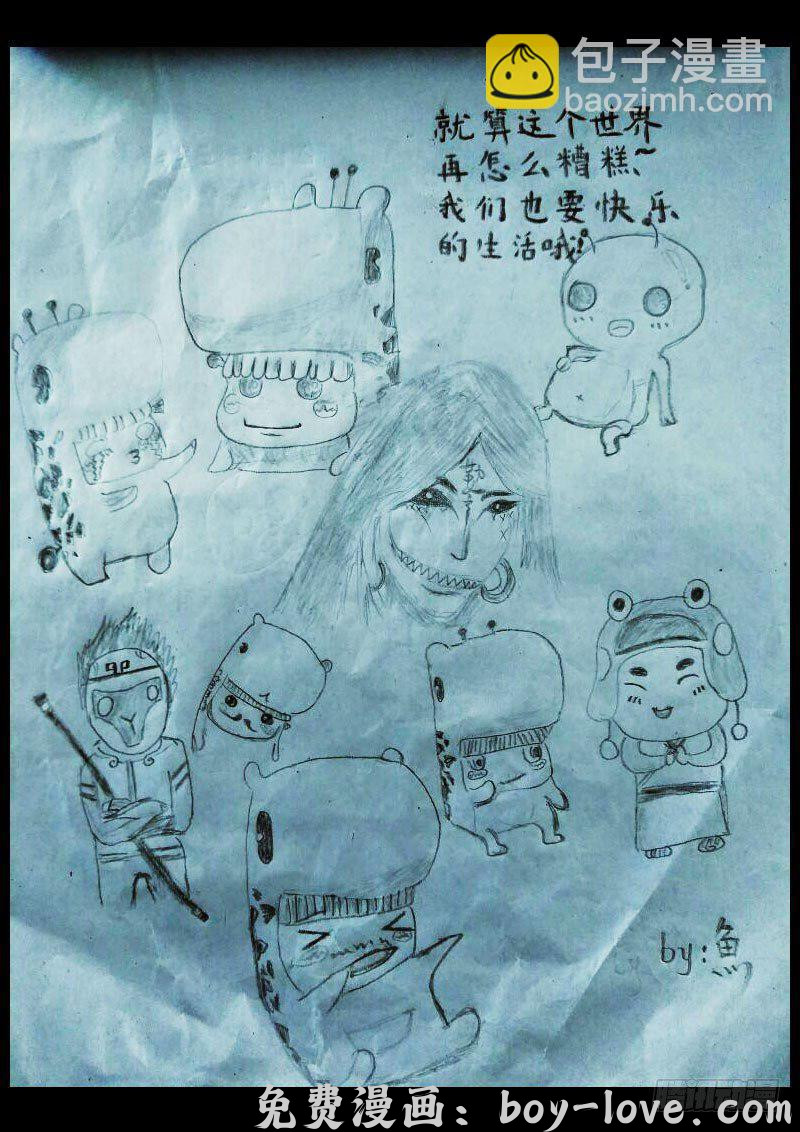 包子漫畫
baozimh.com
就算这个世界
再怎么糟糕~
我们也要快乐
的生活哦!
勒
by:魚
腾讯动漫
免费漫画：boy-love.com